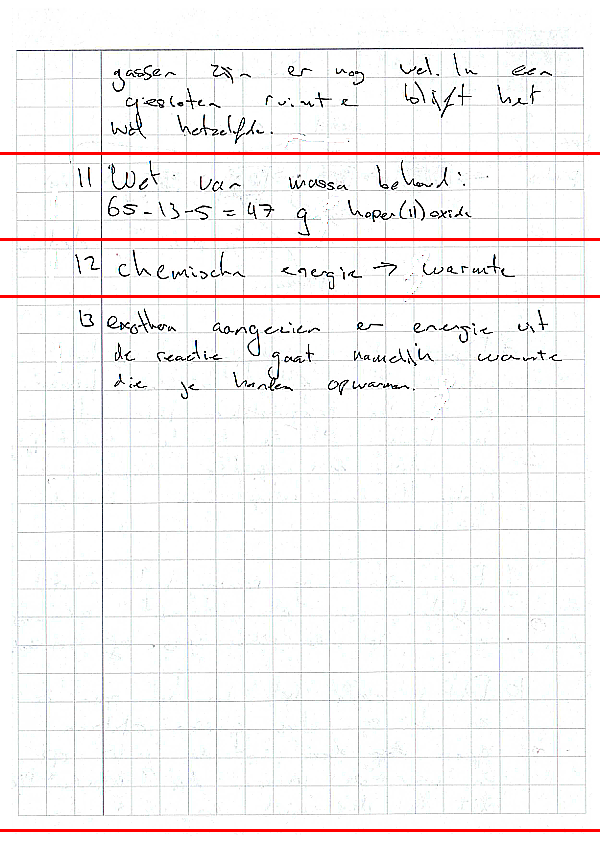 gassen zijn er nog wel. In een
gesloten ruimte blijft het
wel hetzelfde.
11 Wet van massa behoud:
65-13-5 = 47 g koper(II)oxide
12 chemische energie → warmte
13 exotherm aangezien er energie uit
de reactie gaat namelijk warmte
die je handen opwarmen.